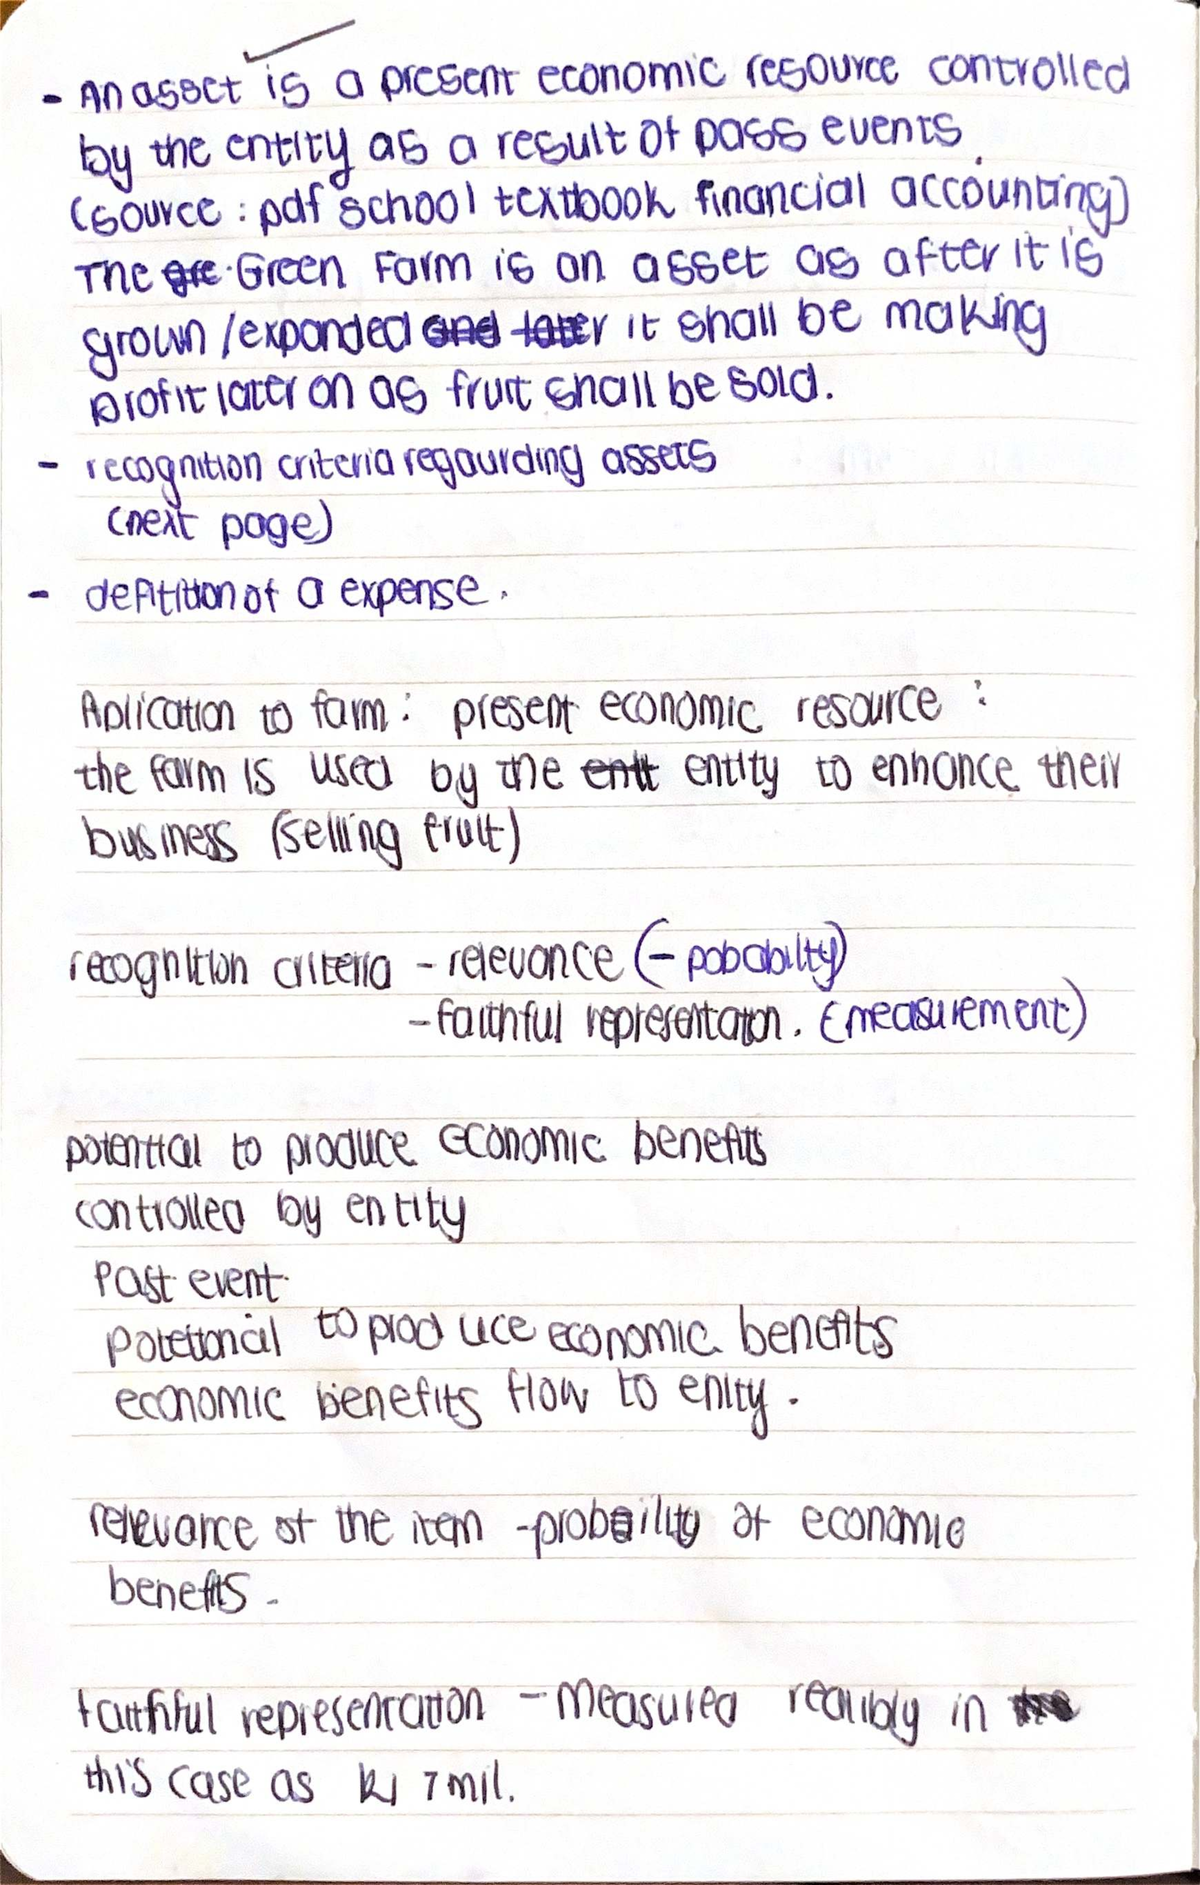 - An asset is a present economic resource controlled
by the entity as a result of pass events.
(source : pdf school textbook financial accounting)
The gre Green Farm is an asset as after it is
grown /expanded and later it shall be making
profit later on as fruit shall be sold.
- recognition criteria regaurding assets
(next page)
- defitition of a expense.
Aplication to farm : present economic resource :
the farm is used by the entit entity to enhance their
business (selling fruit)
recognition criteria - relevance (- pobability)
- faithful representation. (measurement)
potential to produce economic benefits
controlled by entity
Past event
Potetioncial to produce economic benefits
economic benefits flow to enity.
relevance of the item - probility of economic
benefits -
faithful representation - measured realibly in
this case as R1 7 mil.